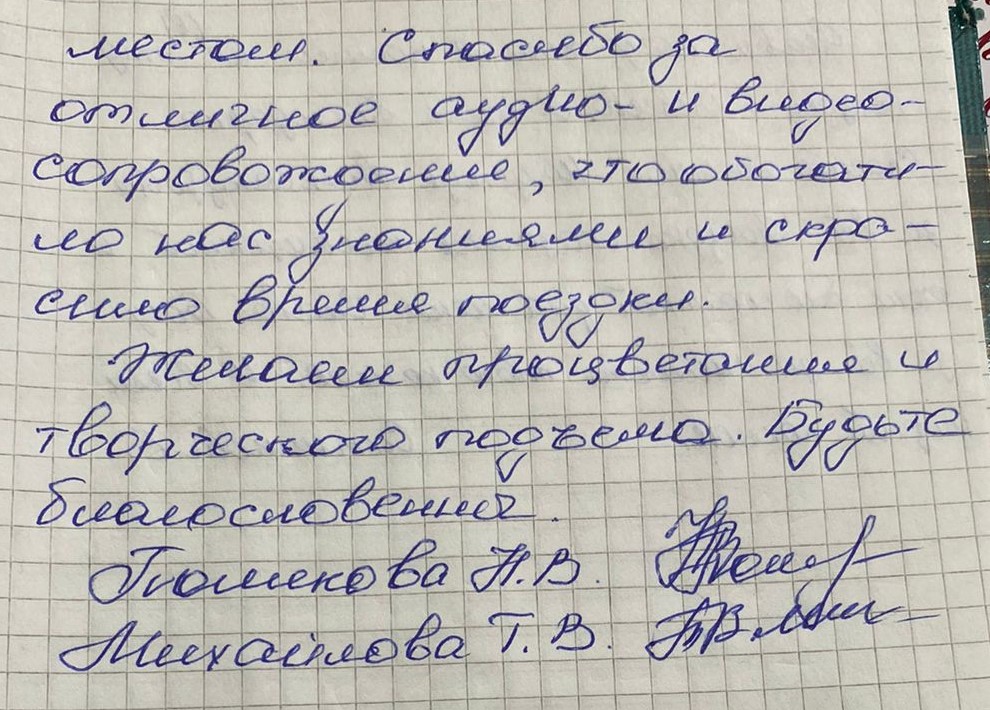 местам. Спасибо за
отличное аудио- и видео-
сопровождение, это обогати-
ло нас знаниями и скра-
сило время поездки.
Желаем процветания и
творческого подъема. Будьте
благословенны.
Н.В.
Михайлова Т.В.